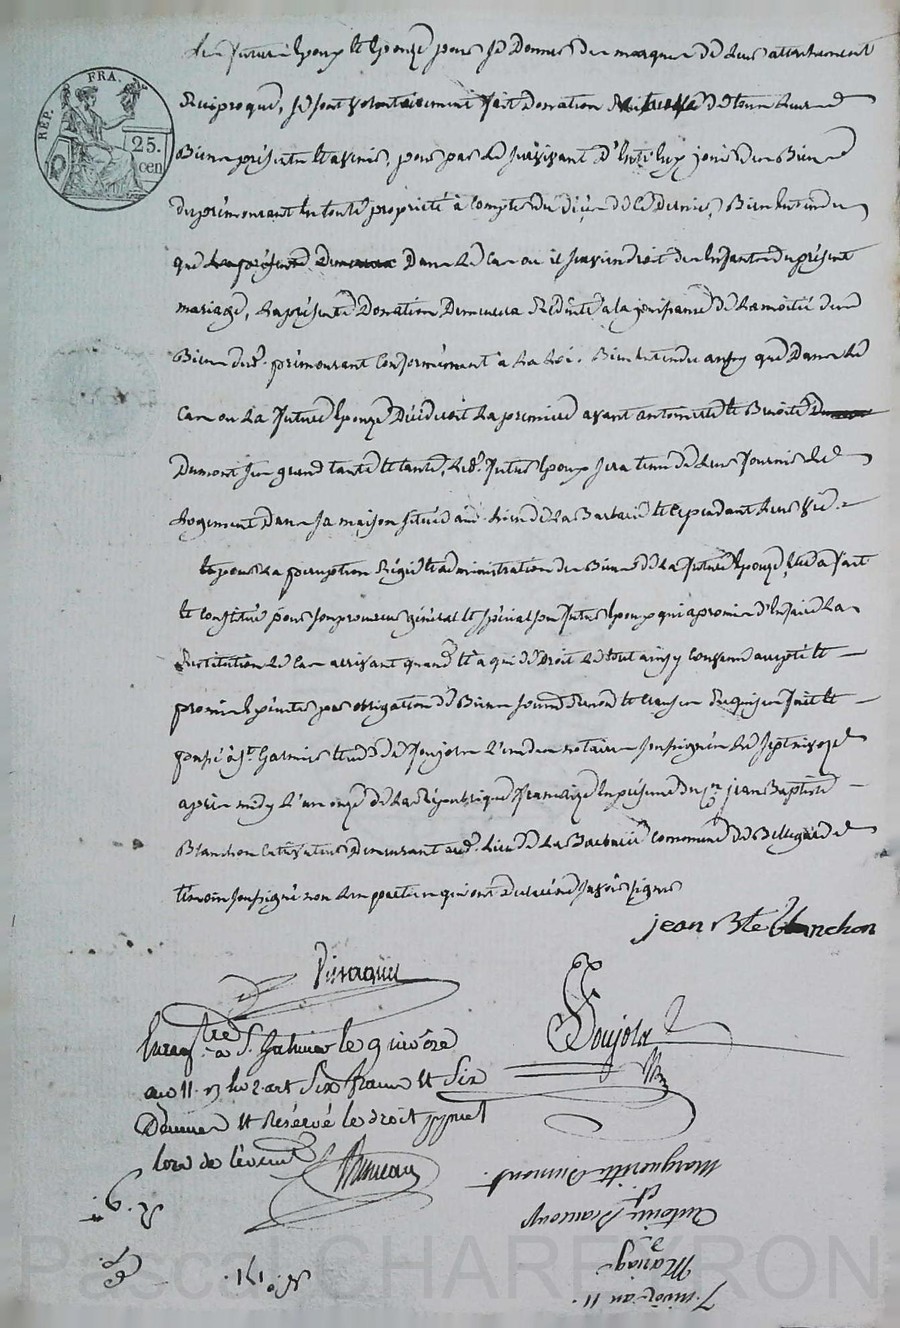 REP. FRA.
25.
cen
les futurs époux et épouze pour se donner des marques de leur attachement
réciproque, se sont volontairement fait donation de tous leurs
Biens présents et avenir, pour par le survivant d'entr'eux jouir des Biens
du prémourant en toute propriété à compter du décès de ce dernier, Bien entendu
que dans le cas ou il surviendroit des enfants du présent
mariage, la présente Donation demeurera réduite a la jouissance de la moitié des
Biens dud. prémourant conformément à la loi. Bien entendu aussy que dans le
cas ou la future épouze décéderoit la premiere avant antoinette et Benoite
Dumont ses grand tante et tante, led. futur époux sera tenu de leur fournir le
logement dans sa maison située aud. lieu de la Barbarie et ce pendant leur vie.
et pour la perception régie et administration des Biens de la future épouze, elle a fait
et constitué pour son procureur général et spécial son futur époux qui a promis d'en faire la
restitution le cas arrivant quand et a qui de droit le tout ainsy convenu accepté et
promis peines par obligation de Biens soumis renon et clauses requises fait et
passé à St. Galmier étude de Poujola l'un des notaires soussignés le sept nivoze
après midy l'an onze de la République française en présence du cn. jean Baptiste
Blanchon cultivateur demeurant aud. lieu de la Barbarie commune de Bellegarde
témoin soussigné non les parties qui ont déclaré ne savoir signer
jean Bte Blanchon
Poujola
Enregtré a St. Galmier le 9 nivôse
an 11. Six francs et Six
Décimes et réservé le droit
lors de l'événement
Margueritte Dumont
et
Antoine
Mariage
7 nivôze an 11.
Pascal CHAREYRON